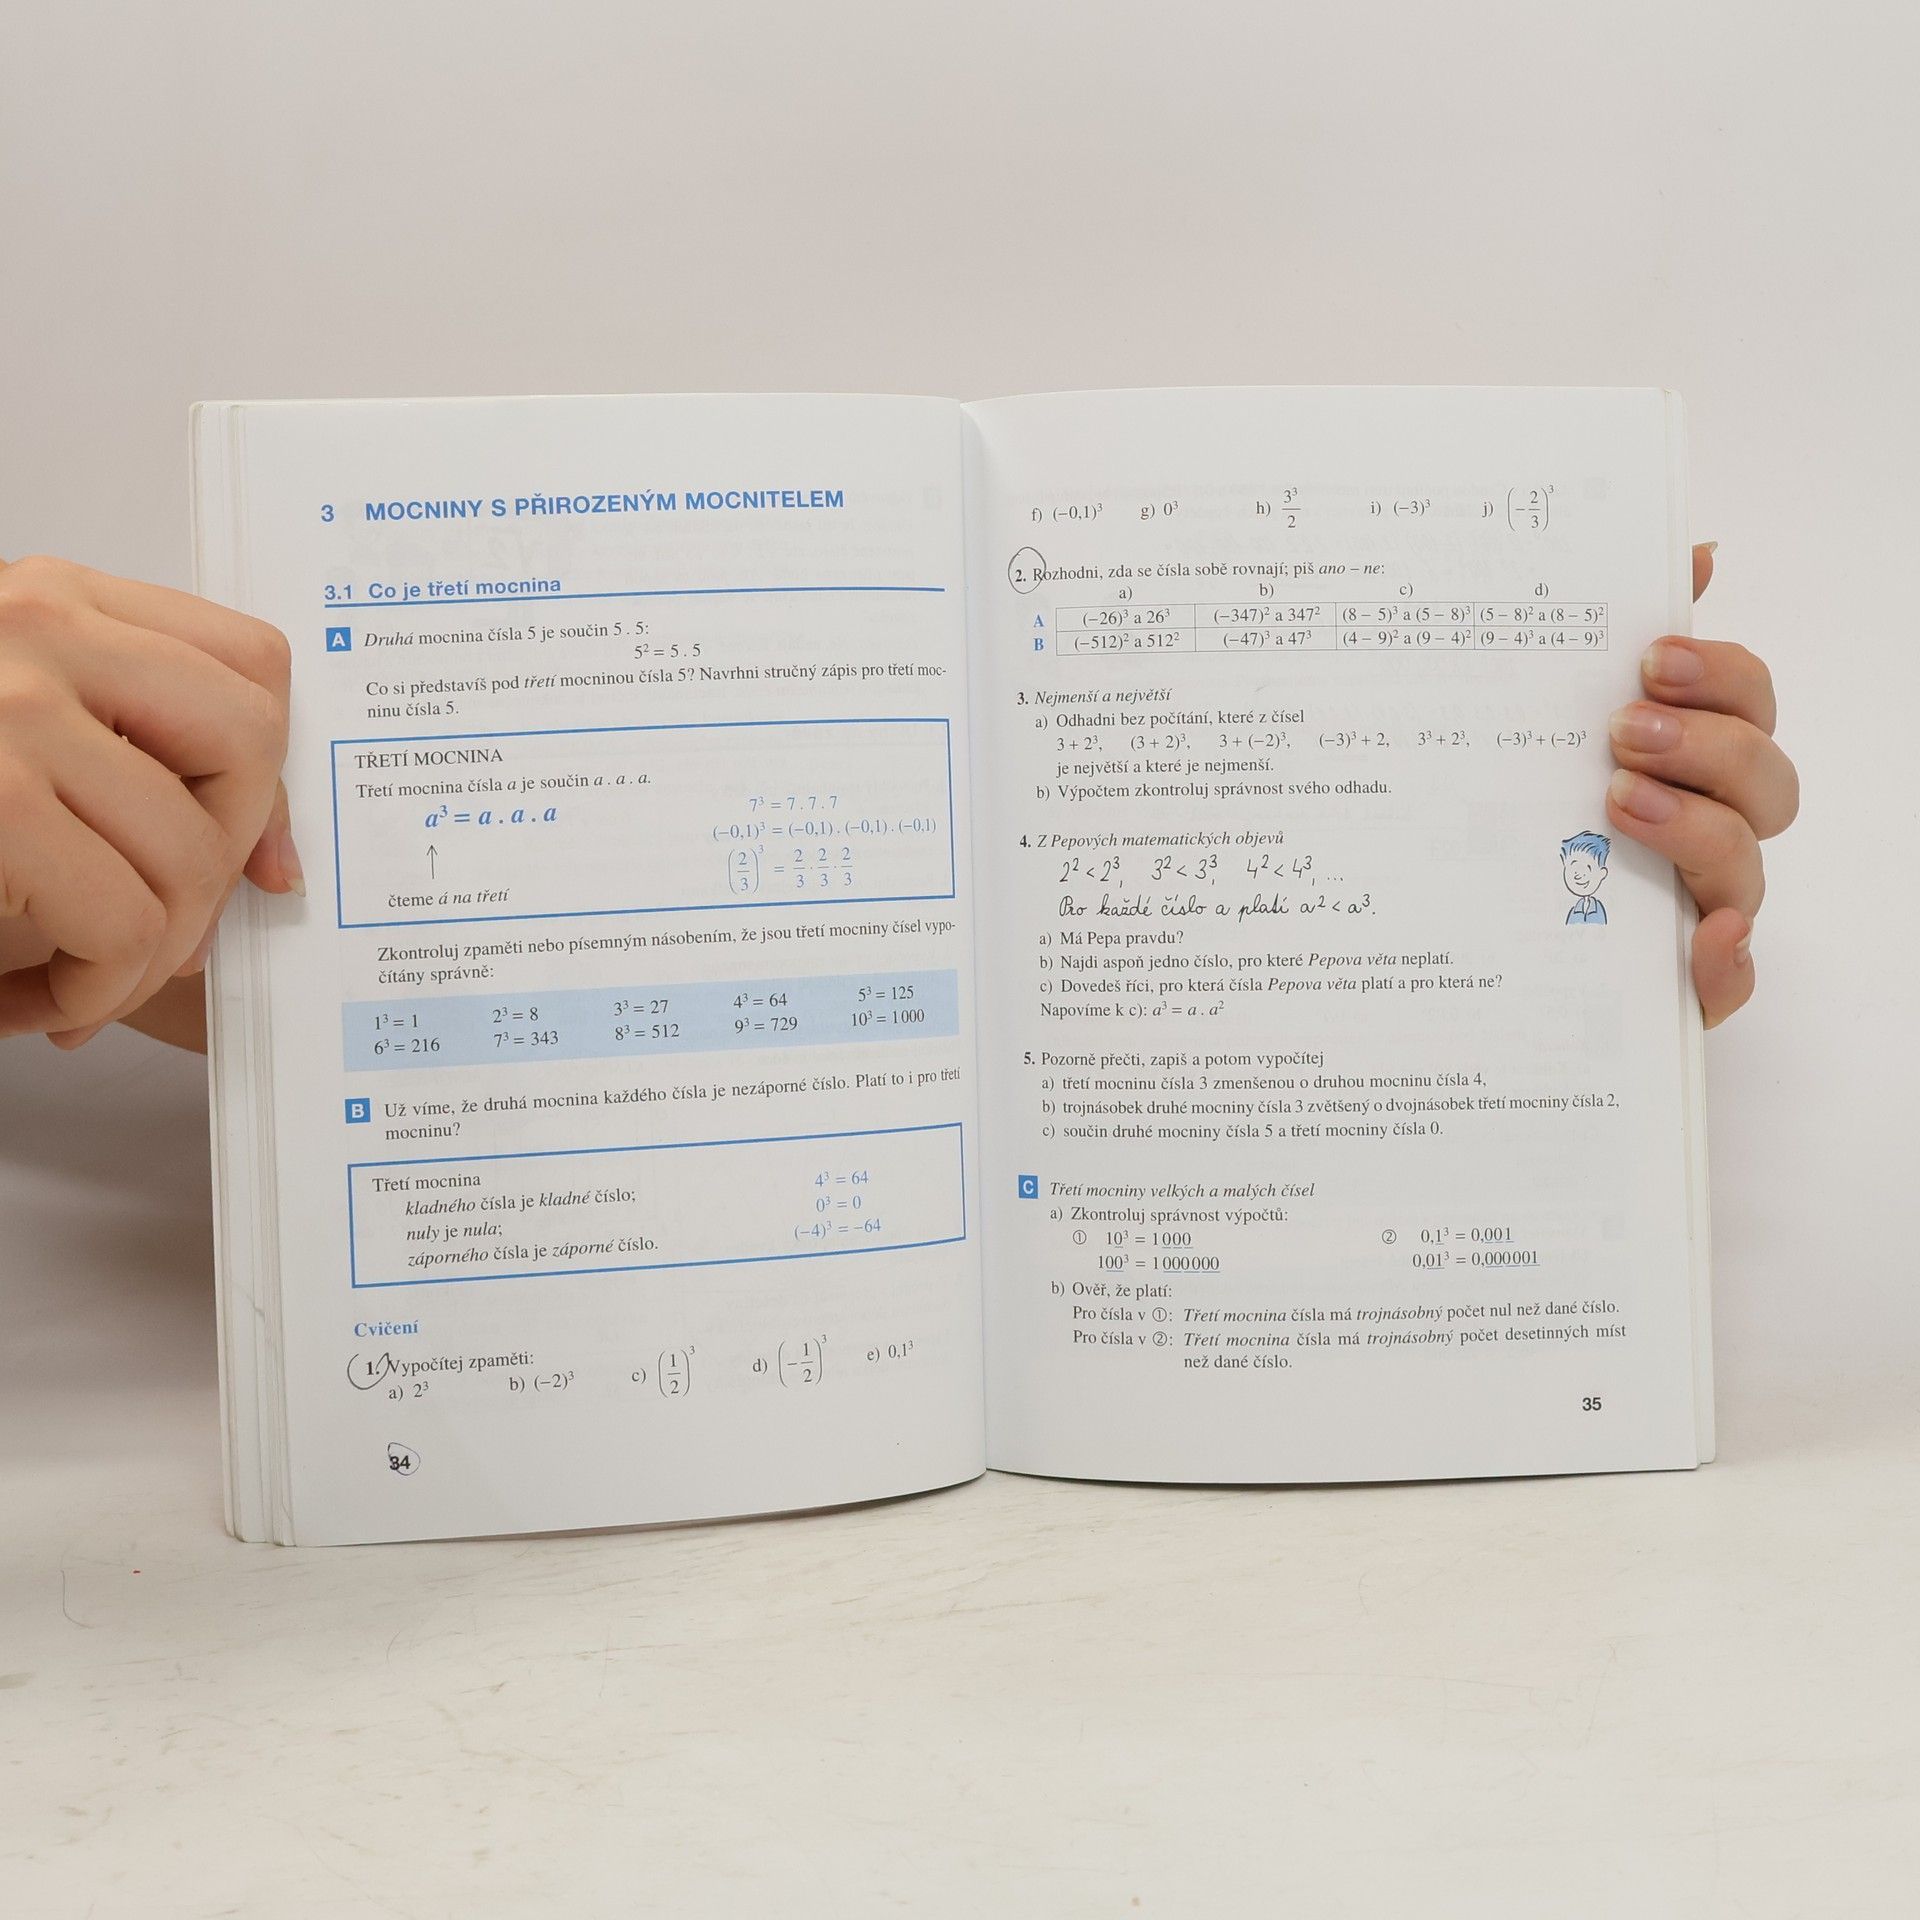 3 MOCNINY S PŘIROZENÝM MOCNITELEM
3.1 Co je třetí mocnina
A Druhá mocnina čísla 5 je součin 5 . 5:
5² = 5 . 5
Co si představíš pod třetí mocninou čísla 5? Navrhni stručný zápis pro třetí moc-
ninu čísla 5.
TŘETÍ MOCNINA
Třetí mocnina čísla a je součin a . a . a.
a³ = a . a . a
↑
čteme á na třetí
7³ = 7 . 7 . 7
(−0,1)³ = (−0,1) . (−0,1) . (−0,1)
(2/3)³ = 2/3 · 2/3 · 2/3
Zkontroluj zpaměti nebo písemným násobením, že jsou třetí mocniny čísel vypo-
čítány správně:
1³ = 1 2³ = 8 3³ = 27 4³ = 64 5³ = 125
6³ = 216 7³ = 343 8³ = 512 9³ = 729 10³ = 1000
B Už víme, že druhá mocnina každého čísla je nezáporné číslo. Platí to i pro třetí
mocninu?
Třetí mocnina
kladného čísla je kladné číslo; 4³ = 64
nuly je nula; 0³ = 0
záporného čísla je záporné číslo. (−4)³ = −64
Cvičení
1. Vypočítej zpaměti:
a) 2³ b) (−2)³ c) (1/2)³ d) (−1/2)³ e) 0,1³
34
f) (−0,1)³ g) 0³ h) 3³/2 i) (−3)³ j) (−2/3)³
2. Rozhodni, zda se čísla sobě rovnají; piš ano – ne:
a) b) c) d)
A (−26)³ a 26³ (−347)² a 347² (8 − 5)³ a (5 − 8)³ (5 − 8)² a (8 − 5)²
B (−512)² a 512² (−47)³ a 47³ (4 − 9)² a (9 − 4)² (9 − 4)³ a (4 − 9)³
3. Nejmenší a největší
a) Odhadni bez počítání, které z čísel
3 + 2³, (3 + 2)³, 3 + (−2)³, (−3)³ + 2, 3³ + 2³, (−3)³ + (−2)³
je největší a které je nejmenší.
b) Výpočtem zkontroluj správnost svého odhadu.
4. Z Pepových matematických objevů
2² < 2³, 3² < 3³, 4² < 4³, ...
Pro každé číslo a platí a² < a³.
a) Má Pepa pravdu?
b) Najdi aspoň jedno číslo, pro které Pepova věta neplatí.
c) Dovedeš říci, pro která čísla Pepova věta platí a pro která ne?
Napovíme k c): a³ = a . a²
5. Pozorně přečti, zapiš a potom vypočítej
a) třetí mocninu čísla 3 zmenšenou o druhou mocninu čísla 4,
b) trojnásobek druhé mocniny čísla 3 zvětšený o dvojnásobek třetí mocniny čísla 2,
c) součin druhé mocniny čísla 5 a třetí mocniny čísla 0.
C Třetí mocniny velkých a malých čísel
a) Zkontroluj správnost výpočtů:
① 10³ = 1000 ② 0,1³ = 0,001
100³ = 1000000 0,01³ = 0,000001
b) Ověř, že platí:
Pro čísla v ①: Třetí mocnina čísla má trojnásobný počet nul než dané číslo.
Pro čísla v ②: Třetí mocnina čísla má trojnásobný počet desetinných míst
než dané číslo.
35